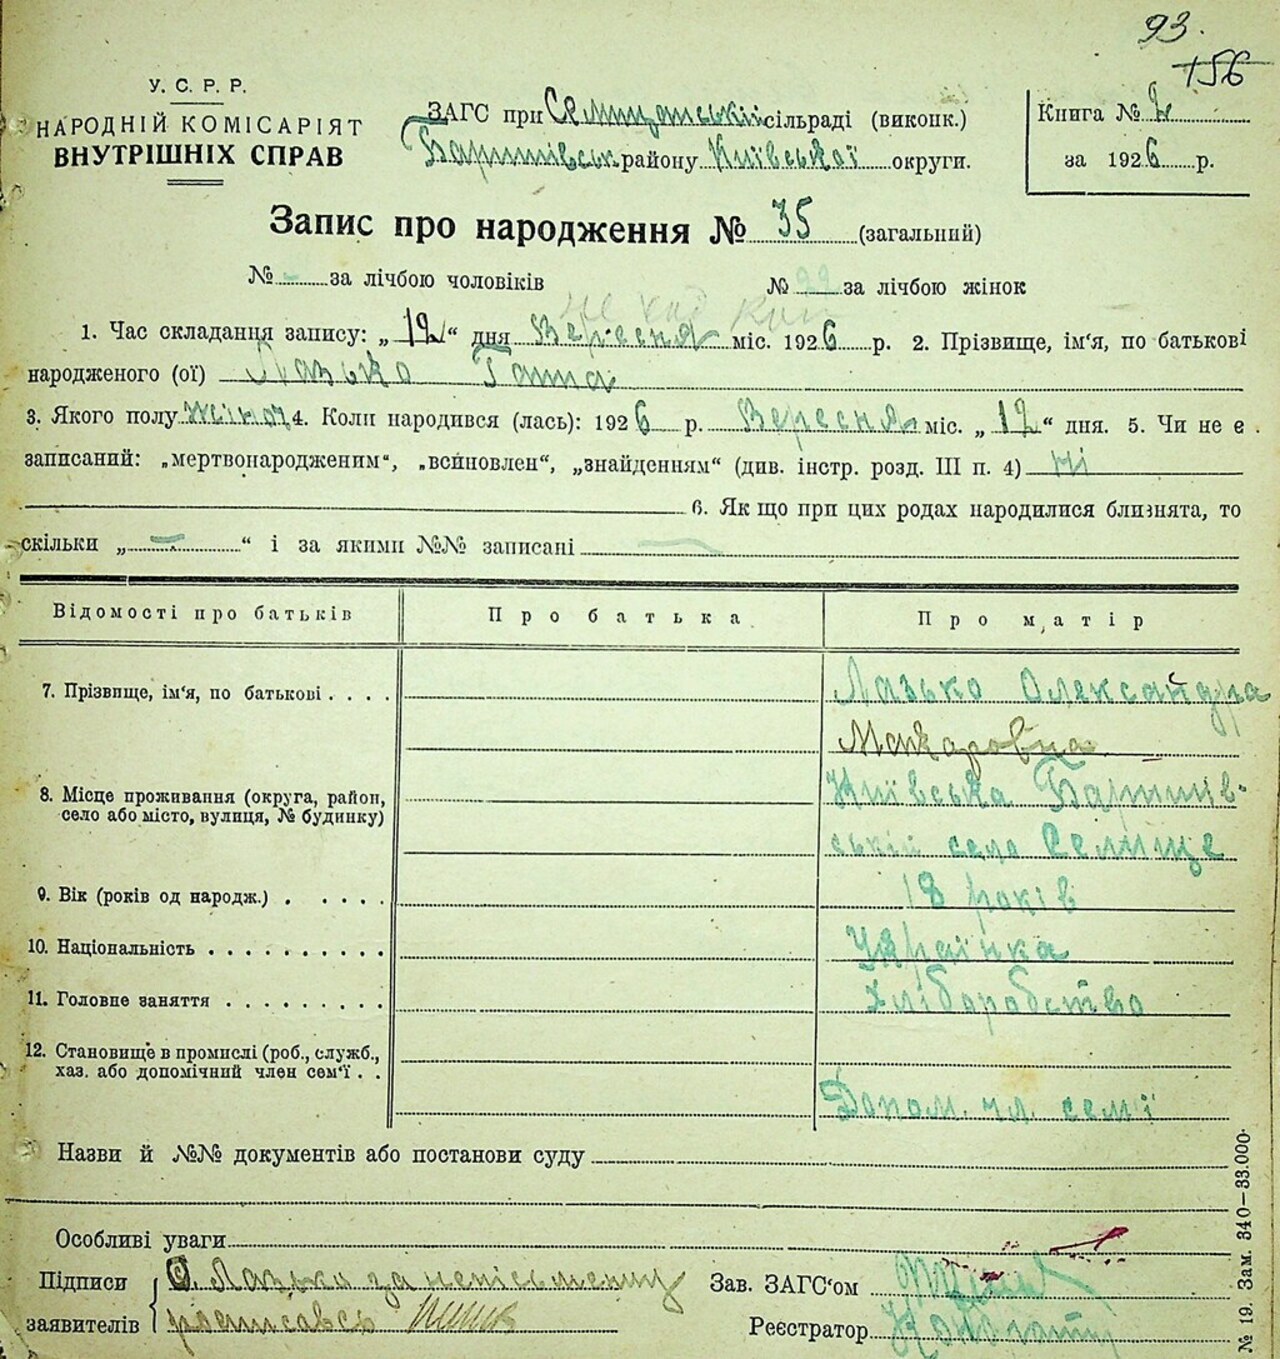 93.
156
У. С. Р. Р.
НАРОДНІЙ КОМІСАРІЯТ
ВНУТРІШНІХ СПРАВ
ЗАГС при Селищанській сільраді (виконк.)
Баришівськ району Київської округи.
Книга №
за 1926 р.
Запис про народження № 35 (загальний)
№ - за лічбою чоловіків
№ 22 за лічбою жінок
1. Час складання запису: „12“ дня Вересня міс. 1926 р. 2. Прізвище, ім‘я, по батькові
народженого (ої) Лазько Ганна
3. Якого полу жіноч 4. Коли народився (лась): 1926 р. Вересня міс. „12“ дня. 5. Чи не є
записаний: „мертвонародженим“, „всиновлен“, „знайденням“ (див. інстр. розд. III п. 4) ні
6. Якщо при цих родах народилися близнята, то
скільки „ — “ і за якими №№ записані —
Відомості про батьків Про батька Про матір
7. Прізвище, ім‘я, по батькові . . . . Лазько Олександра
Макаровна
8. Місце проживання (округа, район, Київська Баришів-
село або місто, вулиця, № будинку)
ській село Селище
9. Вік (років од народж.) . . . . . 18 років
10. Національність . . . . . . . . . . Українка
11. Головне заняття . . . . . . . . . Хліборобство
12. Становище в промислі (роб., служб.,
хаз. або допомічний член сем‘ї . .
Допом. чл. сем'ї
Назви й №№ документів або постанови суду
Особливі уваги
Підписи О. Лазько за неписьменну
заявителів росписавсь
Зав. ЗАГС‘ом
Реєстратор
№ 19. Зам. 340—33.000.